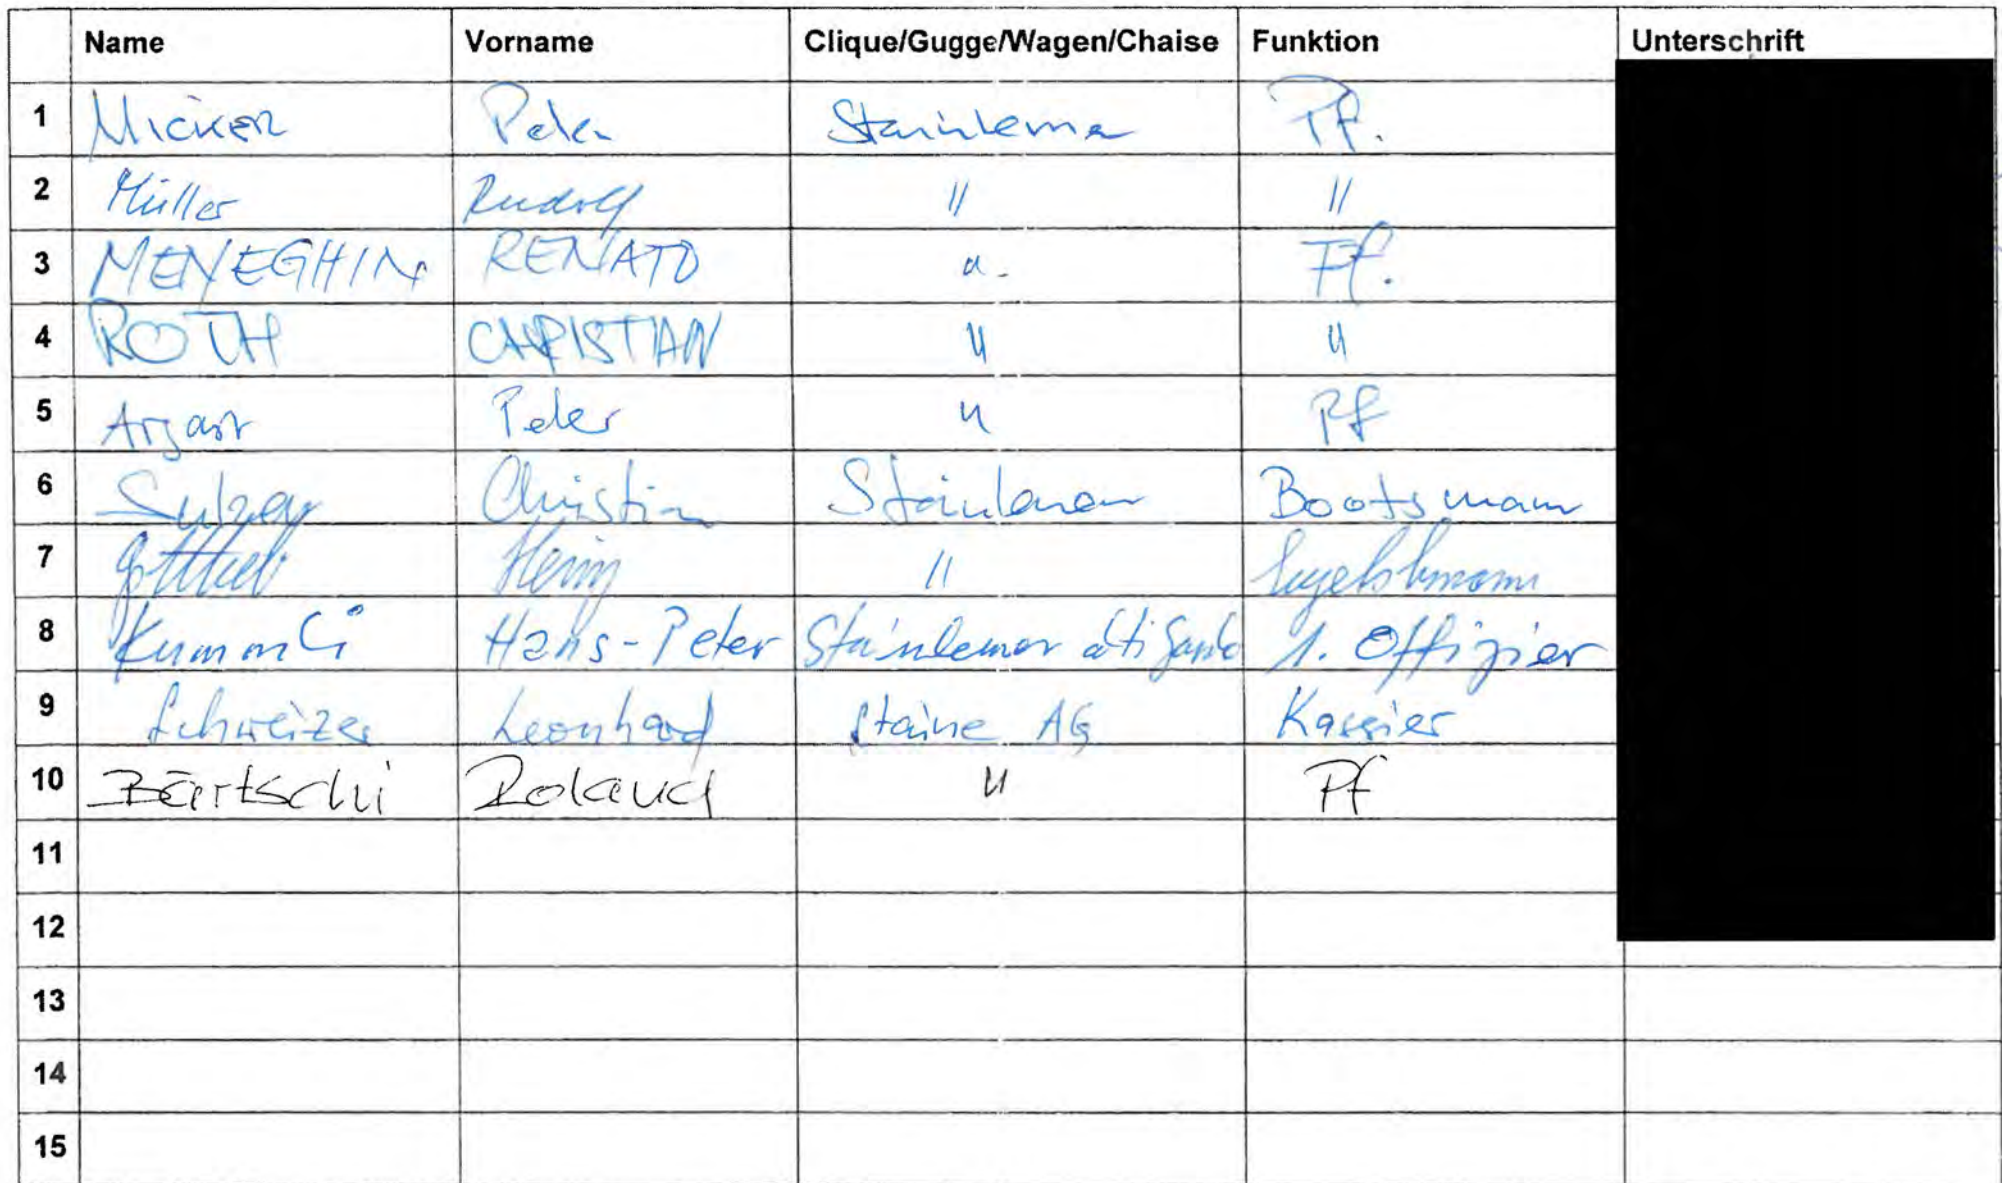 Name Vorname Clique/Gugge/Wagen/Chaise Funktion Unterschrift
1 Peter Stainlemer Pf.
2 Müller Rudolf " "
3 MENEGHIN RENATO " Pf.
4 ROTH CHRISTIAN " "
5 Argast Peter " Pf
6 Sulzer Christian Stainlemer Bootsmann
7 Gottlieb Heinz "
8 Kummli Hans-Peter Stainlemer alti Garde 1. Offizier
9 Schweizer Leonhard Staine AG Kassier
10 Bärtschi Roland " Pf
11
12
13
14
15